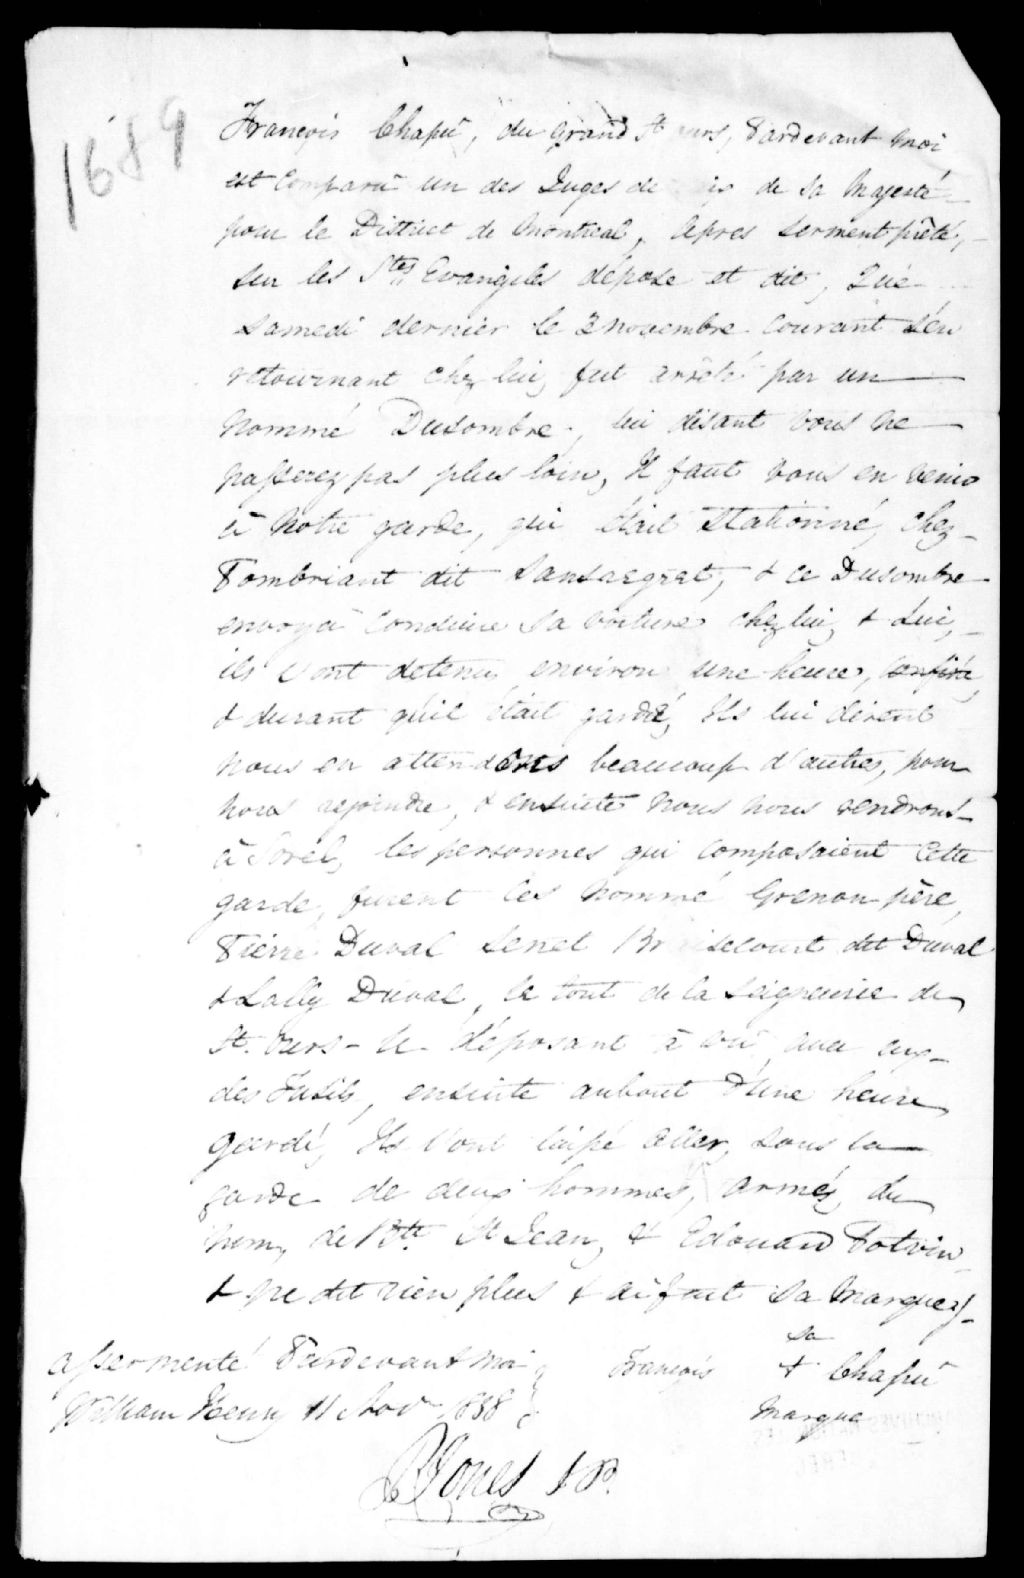 1689
François Chapû, du Grand St urs, Pardevant moi
est Comparu un des Juges de ix de Sa Majesté
pour le District de Montreal, Apres serment prêté,
sur les Stes Evangiles dépose et dit, Que
Samedi dernier le 3 novembre courant s'en
retournant chez lui, fut arrêté par un
nommé Dusombre, lui disant vous ne
passerez pas plus loin, Il faut vous en venir
à notre garde, qui était stationné, chez
Pombriant dit Sansaegret, & ce Dusombre
envoya conduire sa voiture chez lui, & Lui,
ils l'ont detenu environ une heure,
& durant qu'il était gardé, Ils lui dirent
nous en attendons beaucoup d'autres, pour
nous rejoindre, & ensuite nous nous rendrons
à Sorel, les personnes qui composaient cette
garde, furent les nommé Grenon père,
Pierre Duval Senel Br iselourt dit Duval
& Lally Duval, le tout de la Seigneurie de
St. Ours - Le déposant à vû avec eux
des Fusils, ensuite aubout d'une heure
gardé, Ils l'ont laissé aller, sous la
garde de deux hommes, armés, du
nom, de Btte St Jean, & Edouard Potvin
& ne dit rien plus & à fait sa marque
sa
Assermenté Pardevant moi François + Chapû
William Henry 11 Novr 1838 marque
RJones JP.